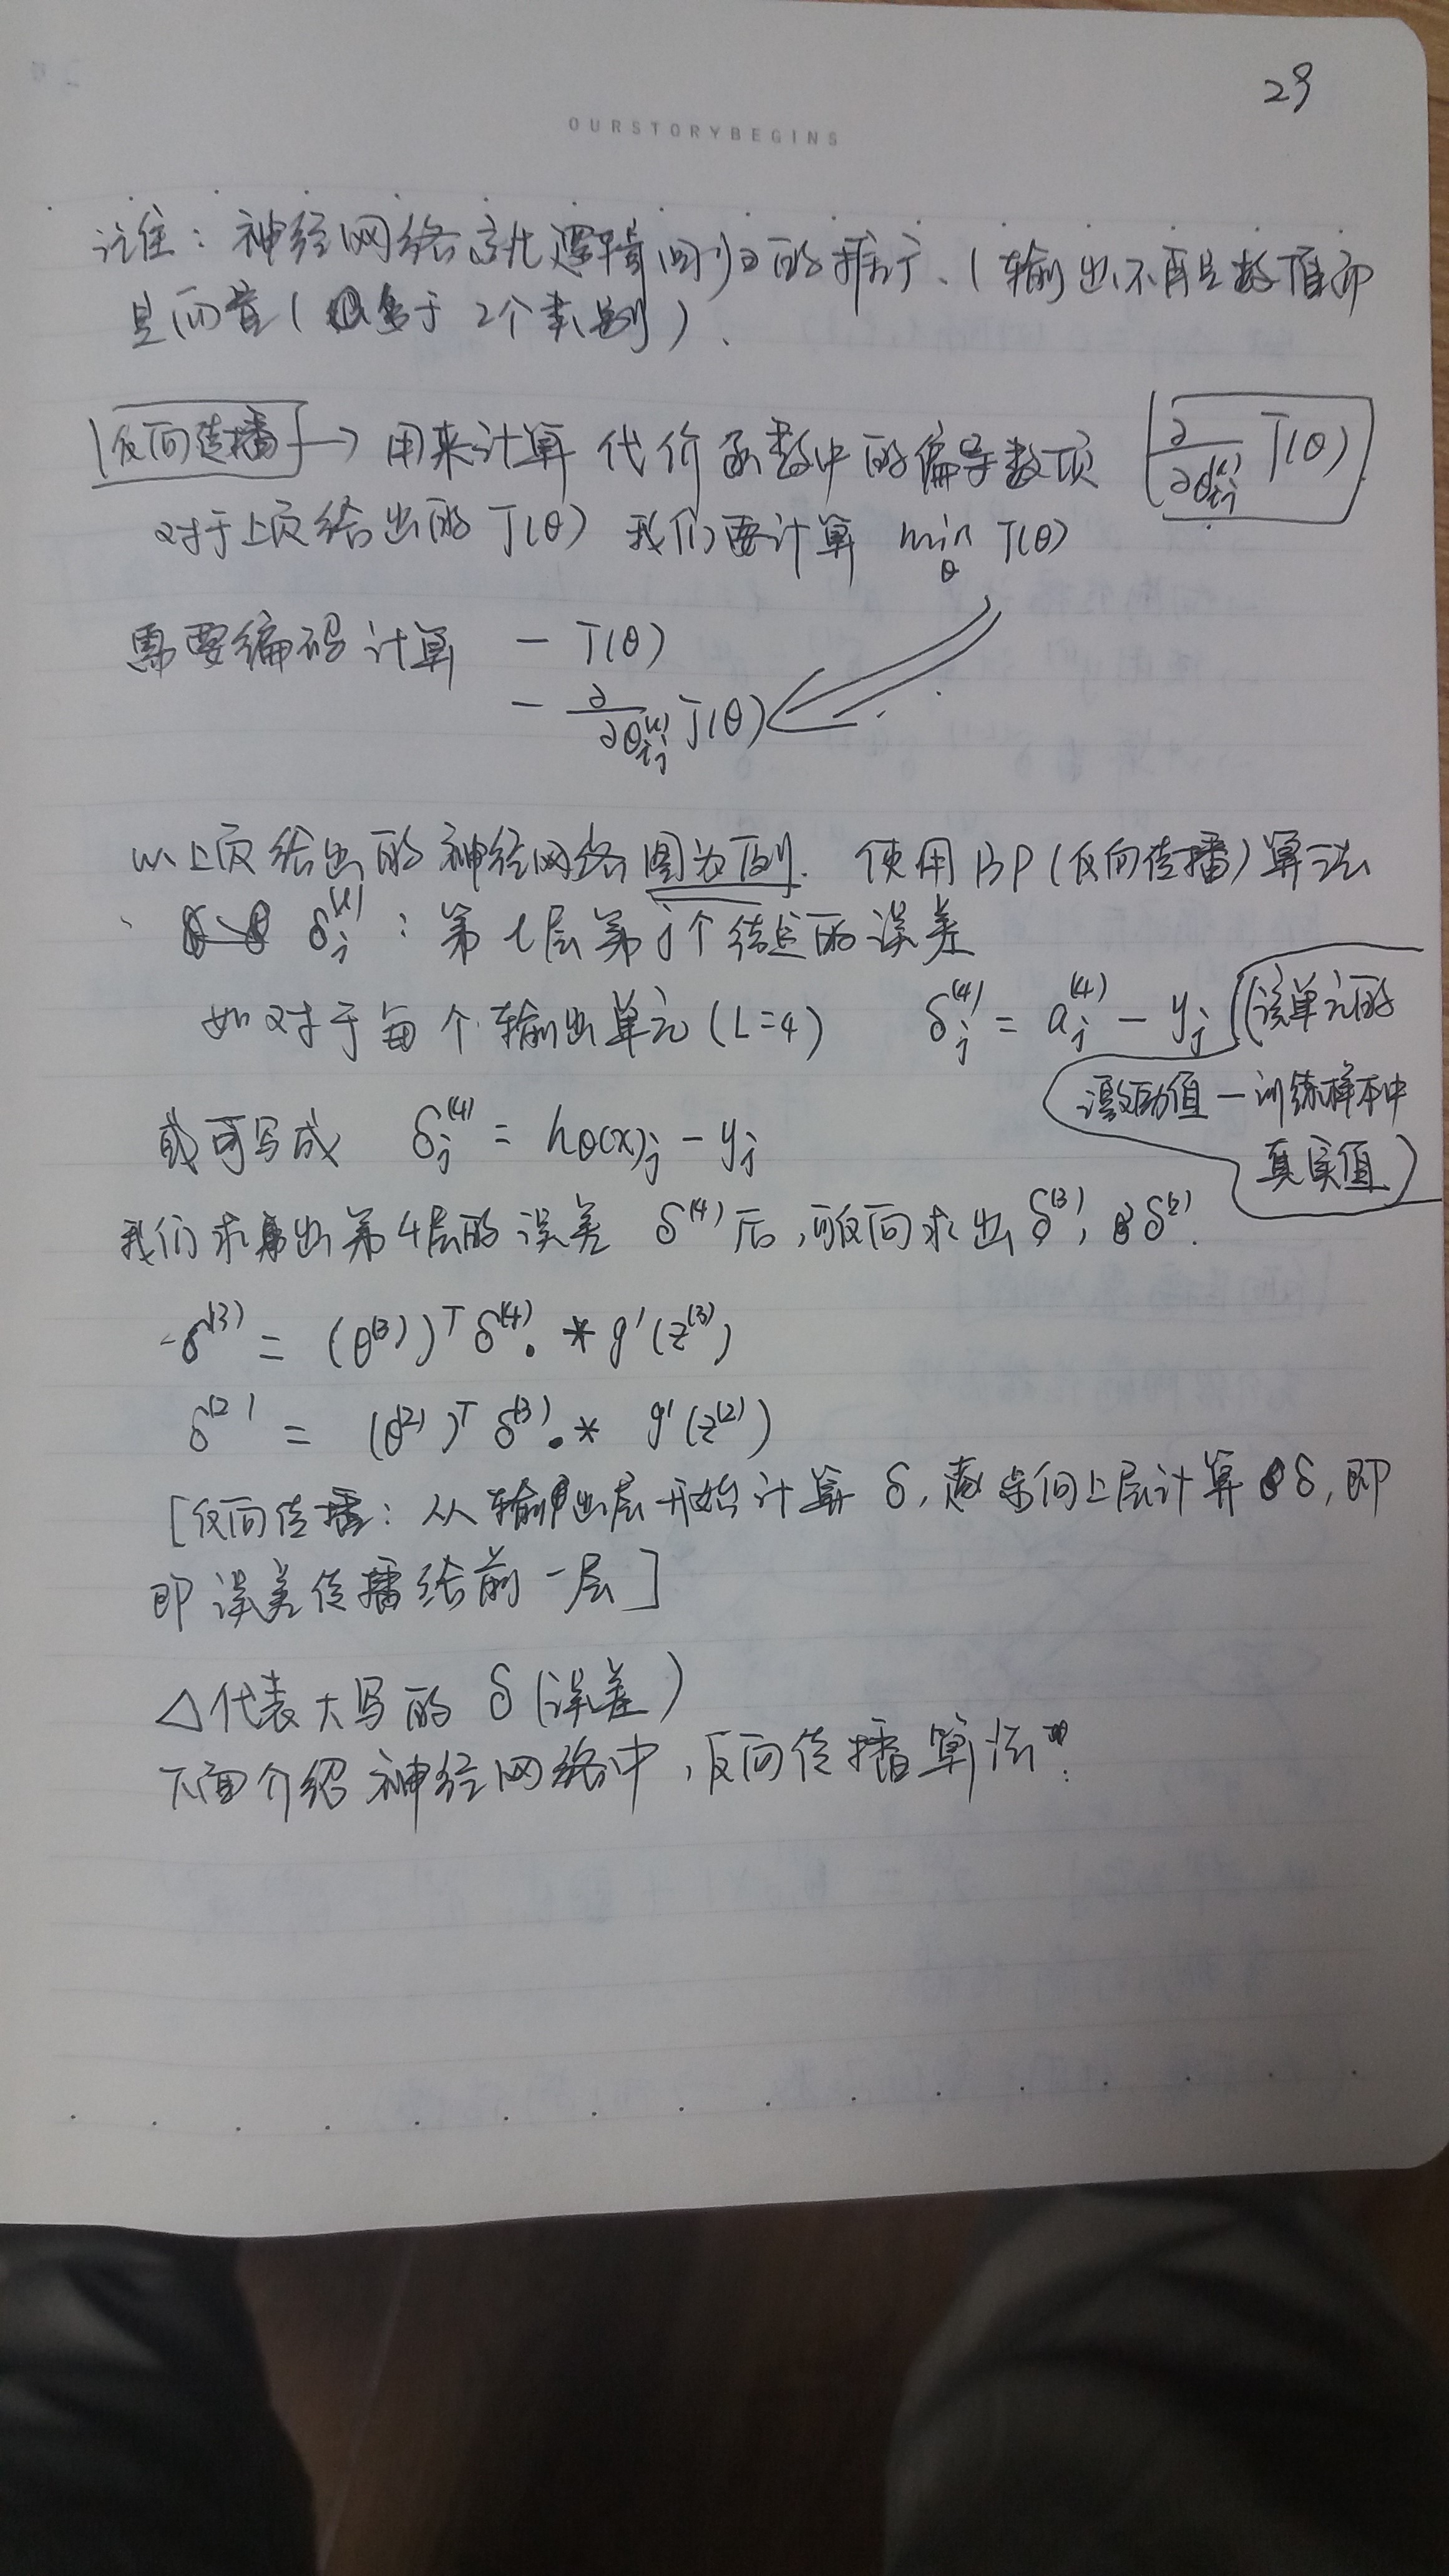 29
OURSTORYBEGINS
注:神经网络就逻辑回归的推广、(输出不再是数值而
是向量(多于2个类别)、
反向传播 → 用来计算 代价函数中的偏导数项 ∂/∂θij^(l) J(θ)
对于上页给出的 J(θ) 我们要计算 min_θ J(θ)
需要编码计算 - J(θ)
- ∂/∂θij^(l) J(θ)
以上页给出的神经网络图为例. 使用BP(反向传播)算法
δj^(l) : 第l层第j个结点的误差
如对于每个输出单元(L=4) δj^(4) = aj^(4) - yj (该单元的
激励值-训练样本中
真实值)
或可写成 δj^(4) = hθ(x)j - yj
我们求出第4层的误差 δ^(4)后,可反向求出δ^(3), δ^(2).
- δ^(3) = (θ^(3))^T δ^(4) .* g'(z^(3))
δ^(2) = (θ^(2))^T δ^(3) .* g'(z^(2))
[反向传播:从输出层开始计算 δ, 向上层计算 δ, 即
即误差传播给前一层]
△代表大写的 δ(误差)
下面介绍神经网络中,反向传播算法: